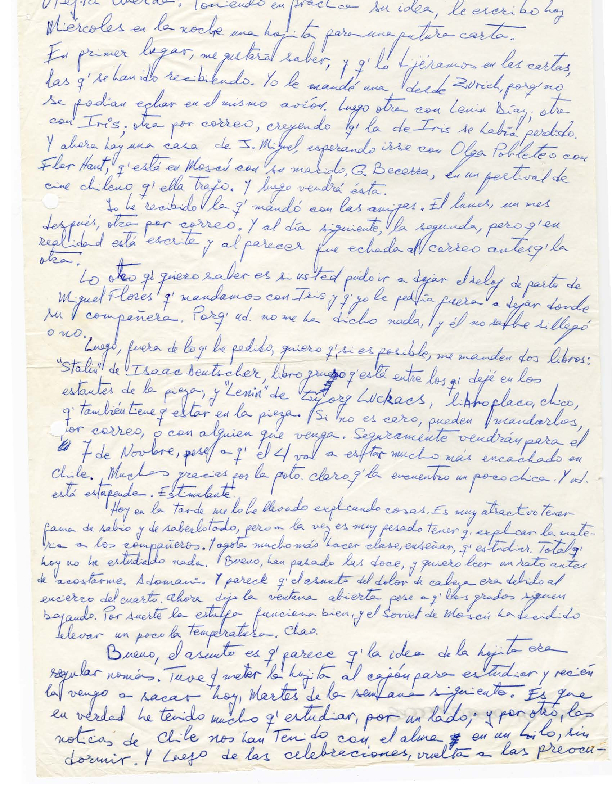 Negra querida: Poniendo en práctica su idea, le escribo hoy
Miércoles en la noche una hojita para una futura carta.
En primer lugar, me gustaría saber, y q' lo dijéramos en las cartas,
las q' se han ido recibiendo. Yo le mandé una desde Zurich, porq' no
se podían echar en el mismo avión. Luego otra con Lenin Díaz, otra
con Iris; otra por correo, creyendo q' la de Iris se había perdido.
Y ahora hay una casa de J. Miguel esperando irse con Olga Poblete o con
Flor Hant, q' está en Moscú con su marido, G. Becerra, en un festival de
cine chileno q' ella trajo. Y luego vendrá ésta.
Yo he recibido la q' mandó con las amigas. El lunes, un mes
después, otra por correo. Y al día siguiente, la segunda, pero q' en
realidad está escrita y al parecer fue echada al correo antes q' la
otra.
Lo otro q' quiero saber es si usted pudo ir a dejar el reloj de parte de
Miguel Flores q' mandamos con Iris y q' yo le pedía fuera a dejar donde
su compañera. Porq' ud. no me ha dicho nada, y él no sabe si llegó
o no.
Luego, fuera de lo q' he pedido, quiero q' si es posible, me manden dos libros:
"Stalin" de Isaac Deutscher, libro grueso q' está entre los q' dejé en los
estantes de la pieza, y "Lenin" de Györg Luckacs, libro placo, chico,
q' también tiene q' estar en la pieza. Si no es caro, pueden mandarlos
por correo, o con alguien que venga. Seguramente vendrán para el
7 de Novbre, pese a q' el 4 va a estar mucho más encachado en
Chile. Muchas gracias por la foto. Claro q' la encuentro un poco chica. Y ud.
está estupenda. Estimulante.
Hoy en la tarde me lo he llevado explicando cosas. Es muy atractivo tener
fama de sabio y de saberlotodo, pero a la vez es muy pesado tener q' explicar la mate-
ria a los compañeros. Y agota mucho más hacer clase, enseñar, q' estudiar. Total q'
hoy no he estudiado nada. Bueno, han pasado las doce, y quiero leer un rato antes
de acostarme. A domani. Y parece q' el asunto del dolor de cabeza era debido al
encierro del cuarto. Ahora dejo la ventana abierta pese a q' los grados siguen
bajando. Por suerte la estufa funciona bien, y el Soviet de Moscú ha decidido
elevar un poco la temperatura. Chao.
Bueno, el asunto es q' parece q' la idea de la hojita era
regular nomás. Tuve q' meter la hojita al cajón para estudiar y recién
la vengo a sacar hoy, Martes de la semana siguiente. Es que
en verdad he tenido mucho q' estudiar, por un lado; y por otro, las
noticias de Chile nos han tenido con el alma en un hilo, sin
dormir. Y luego de las celebraciones, vuelta a las preocu-